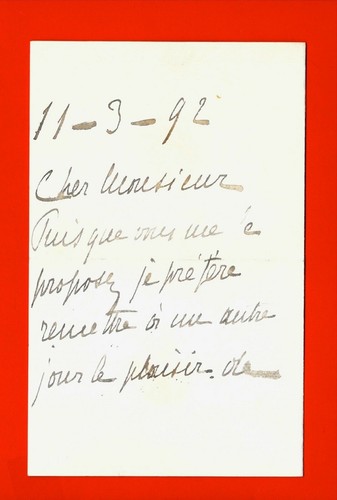 11 - 3 - 92
Cher Monsieur
Puisque vous me le
proposez je préfère
remettre à un autre
jour le plaisir de